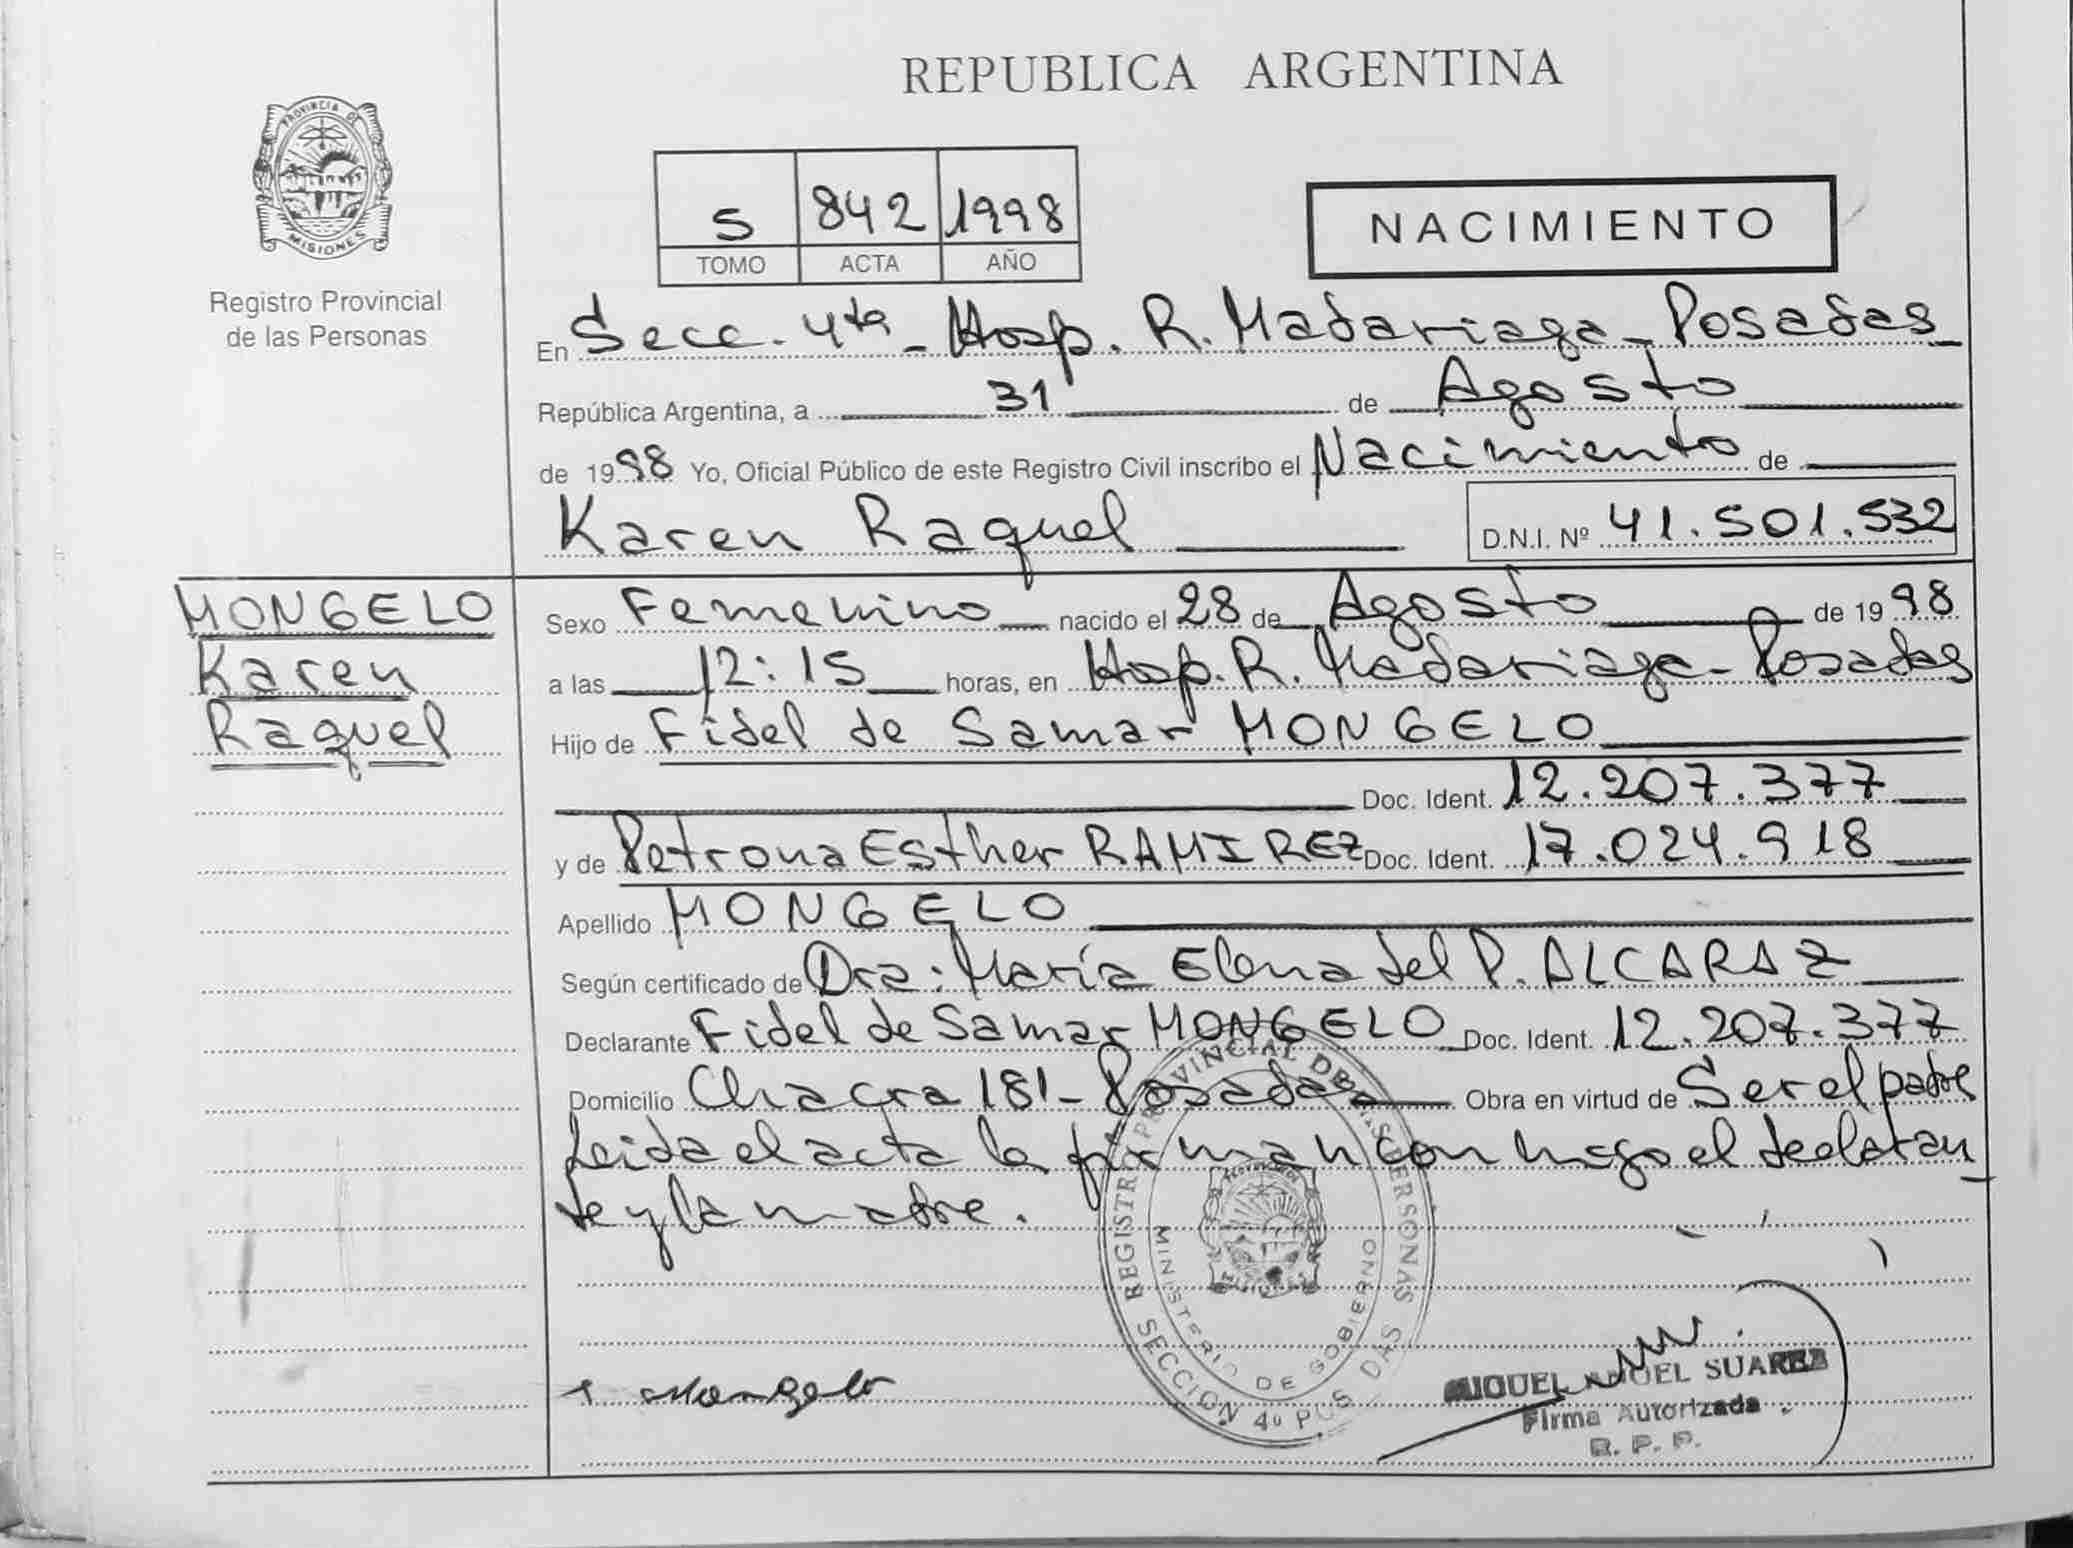 REPUBLICA ARGENTINA
PROVINCIA DE
MISIONES
Registro Provincial
de las Personas
S 842 1998
TOMO ACTA AÑO
NACIMIENTO
En Secc. 4ta - Hosp. R. Madariaga - Posadas
República Argentina, a 31 de Agosto
de 1998 Yo, Oficial Público de este Registro Civil inscribo el Nacimiento de
Karen Raquel
D.N.I. Nº 41.501.532
MONGELO
Karen
Raquel
Sexo Femenino nacido el 28 de Agosto de 1998
a las 12:15 horas, en Hosp. R. Madariaga - Posadas
Hijo de Fidel de Samar MONGELO
Doc. Ident. 12.207.377
y de Petrona Esther RAMIREZ Doc. Ident. 17.024.918
Apellido MONGELO
Según certificado de Dra: María Elena del P. ALCARAZ
Declarante Fidel de Samar MONGELO Doc. Ident. 12.207.377
Domicilio Chacra 181 - Posadas Obra en virtud de Ser el padre
Leida el acta la firman conmigo el declaran
te y la madre.
REGISTRO PROVINCIAL DE LAS PERSONAS
MINISTERIO DE GOBIERNO
SECCION 4º POSADAS
Mongelo
MIGUEL ANGEL SUAREZ
Firma Autorizada
R. P. P.